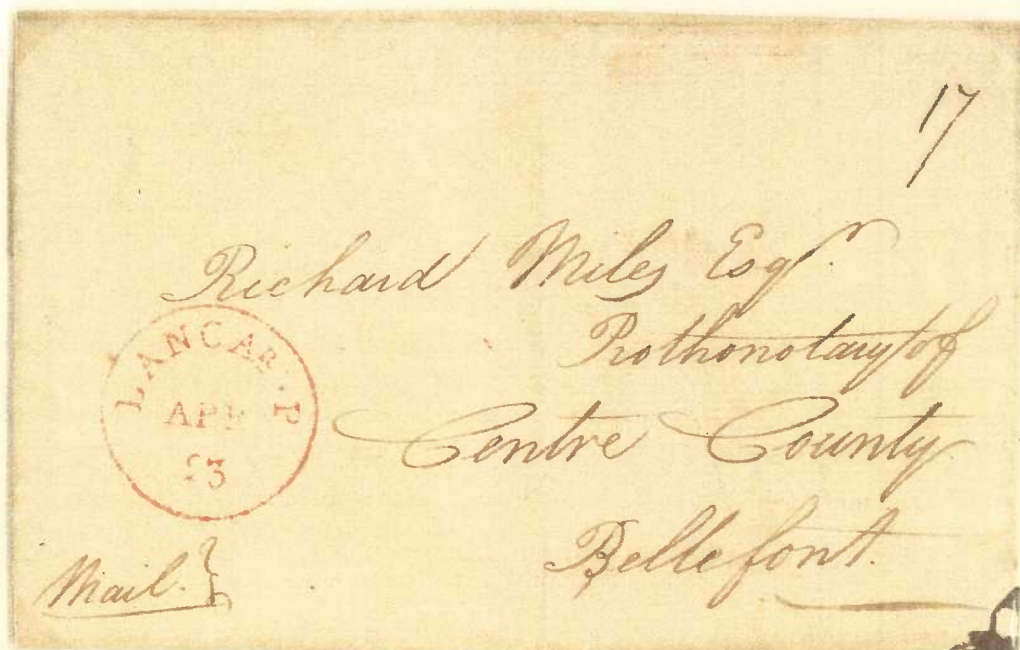 17
Richard Miles Esqr.
Prothonotary of
Centre County
Bellefont.
LANCAR. P
APR
23
Mail.